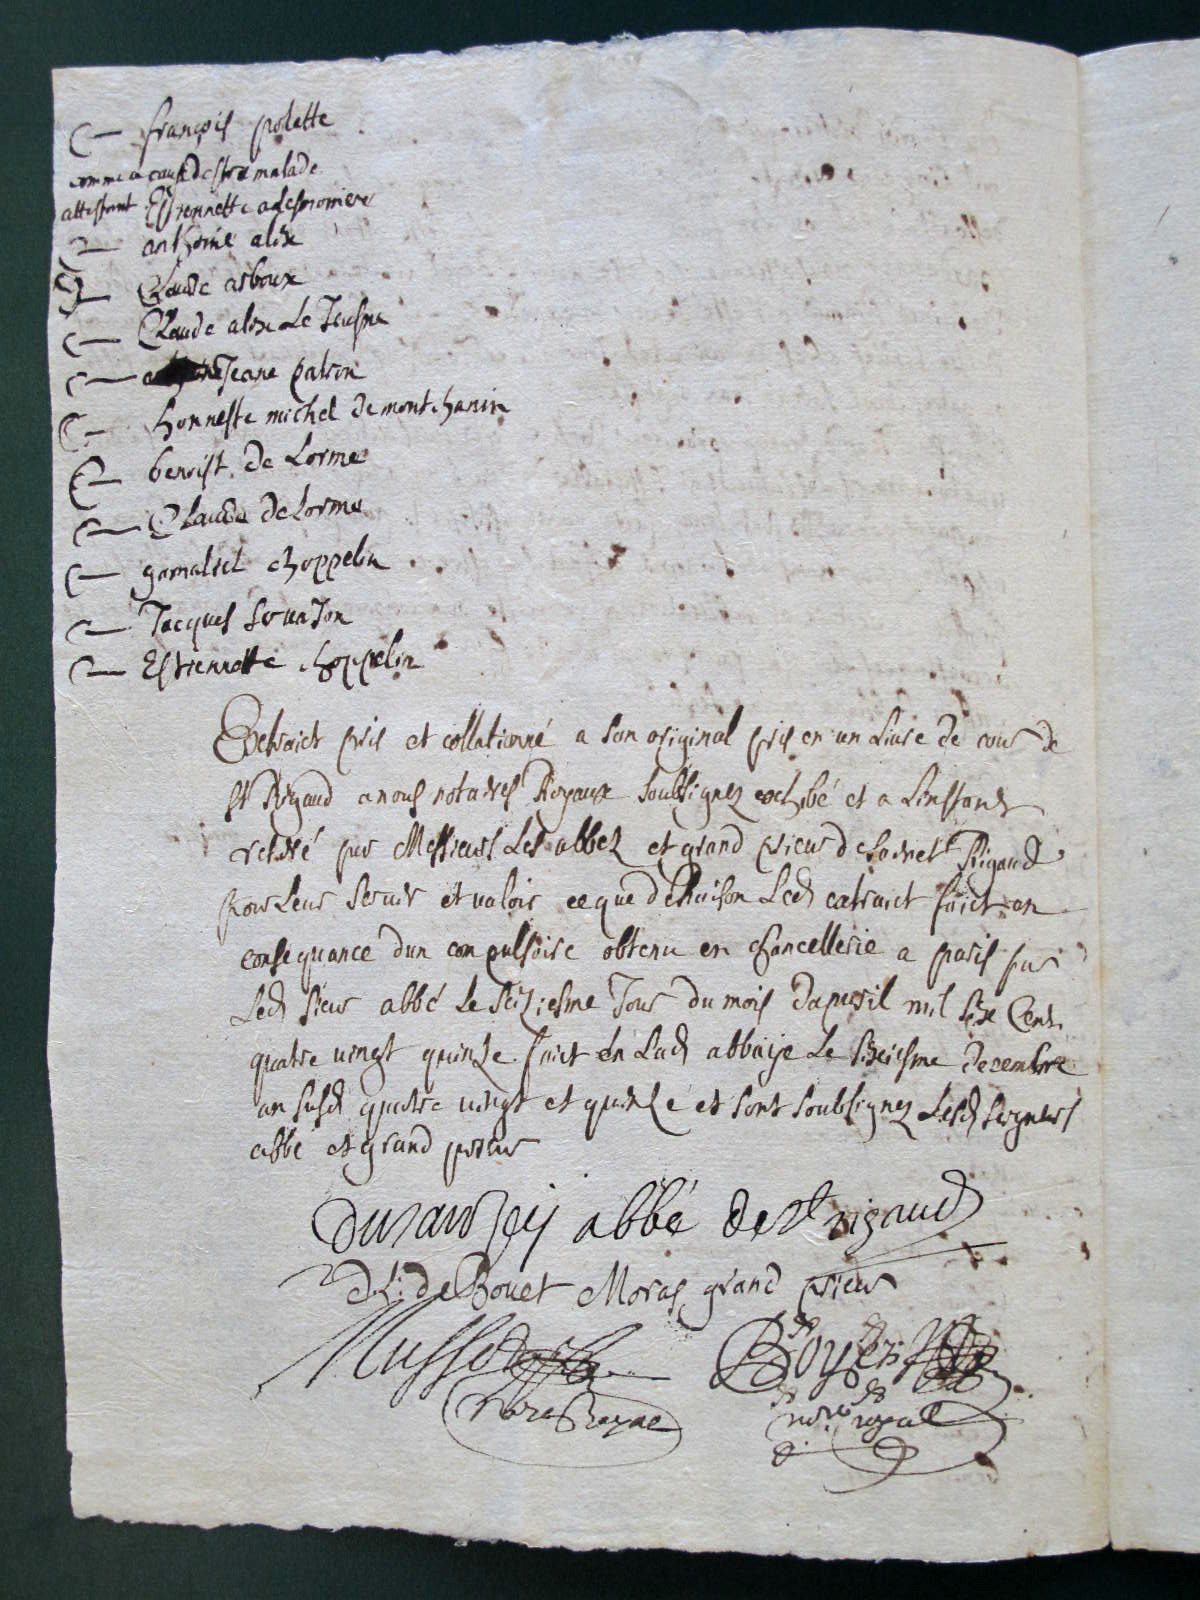 françois polette
comme a cause destre malade
attestant Estiennette
anthoine alix
Claude arboux
Claude alix Le Jeusne
Jeane patron
honneste michel de montchanin
benoist de Lorme
Claude deLorme
gamaliel choppelin
Jacques
Estiennette choppelin
Extraict pris et collationné a son original pris en un Livre de cour de
st Rigaud a nous notaires Royaux soubsignez exhibé et a Linstant
retiré par Messieurs Les abbez et grand prieur de sainct Rigaud
pour Leur servir et valoir ce que de Raison Led extraict faict en
consequance dun compulsoire obtenu en chancellerie a paris par
Led sieur abbé Le seiziesme Jour du mois dapvril mil six Cent
quatre vingt quinze faict en Lad abbaye Le seiziesme decembre
an susd quatre vingt et quinze et sont soubsignez Lesd seigneurs
abbé et grand prieur
abbé de st rigaud
de Bouet Moras grand prieur
Boyer
no.re royal